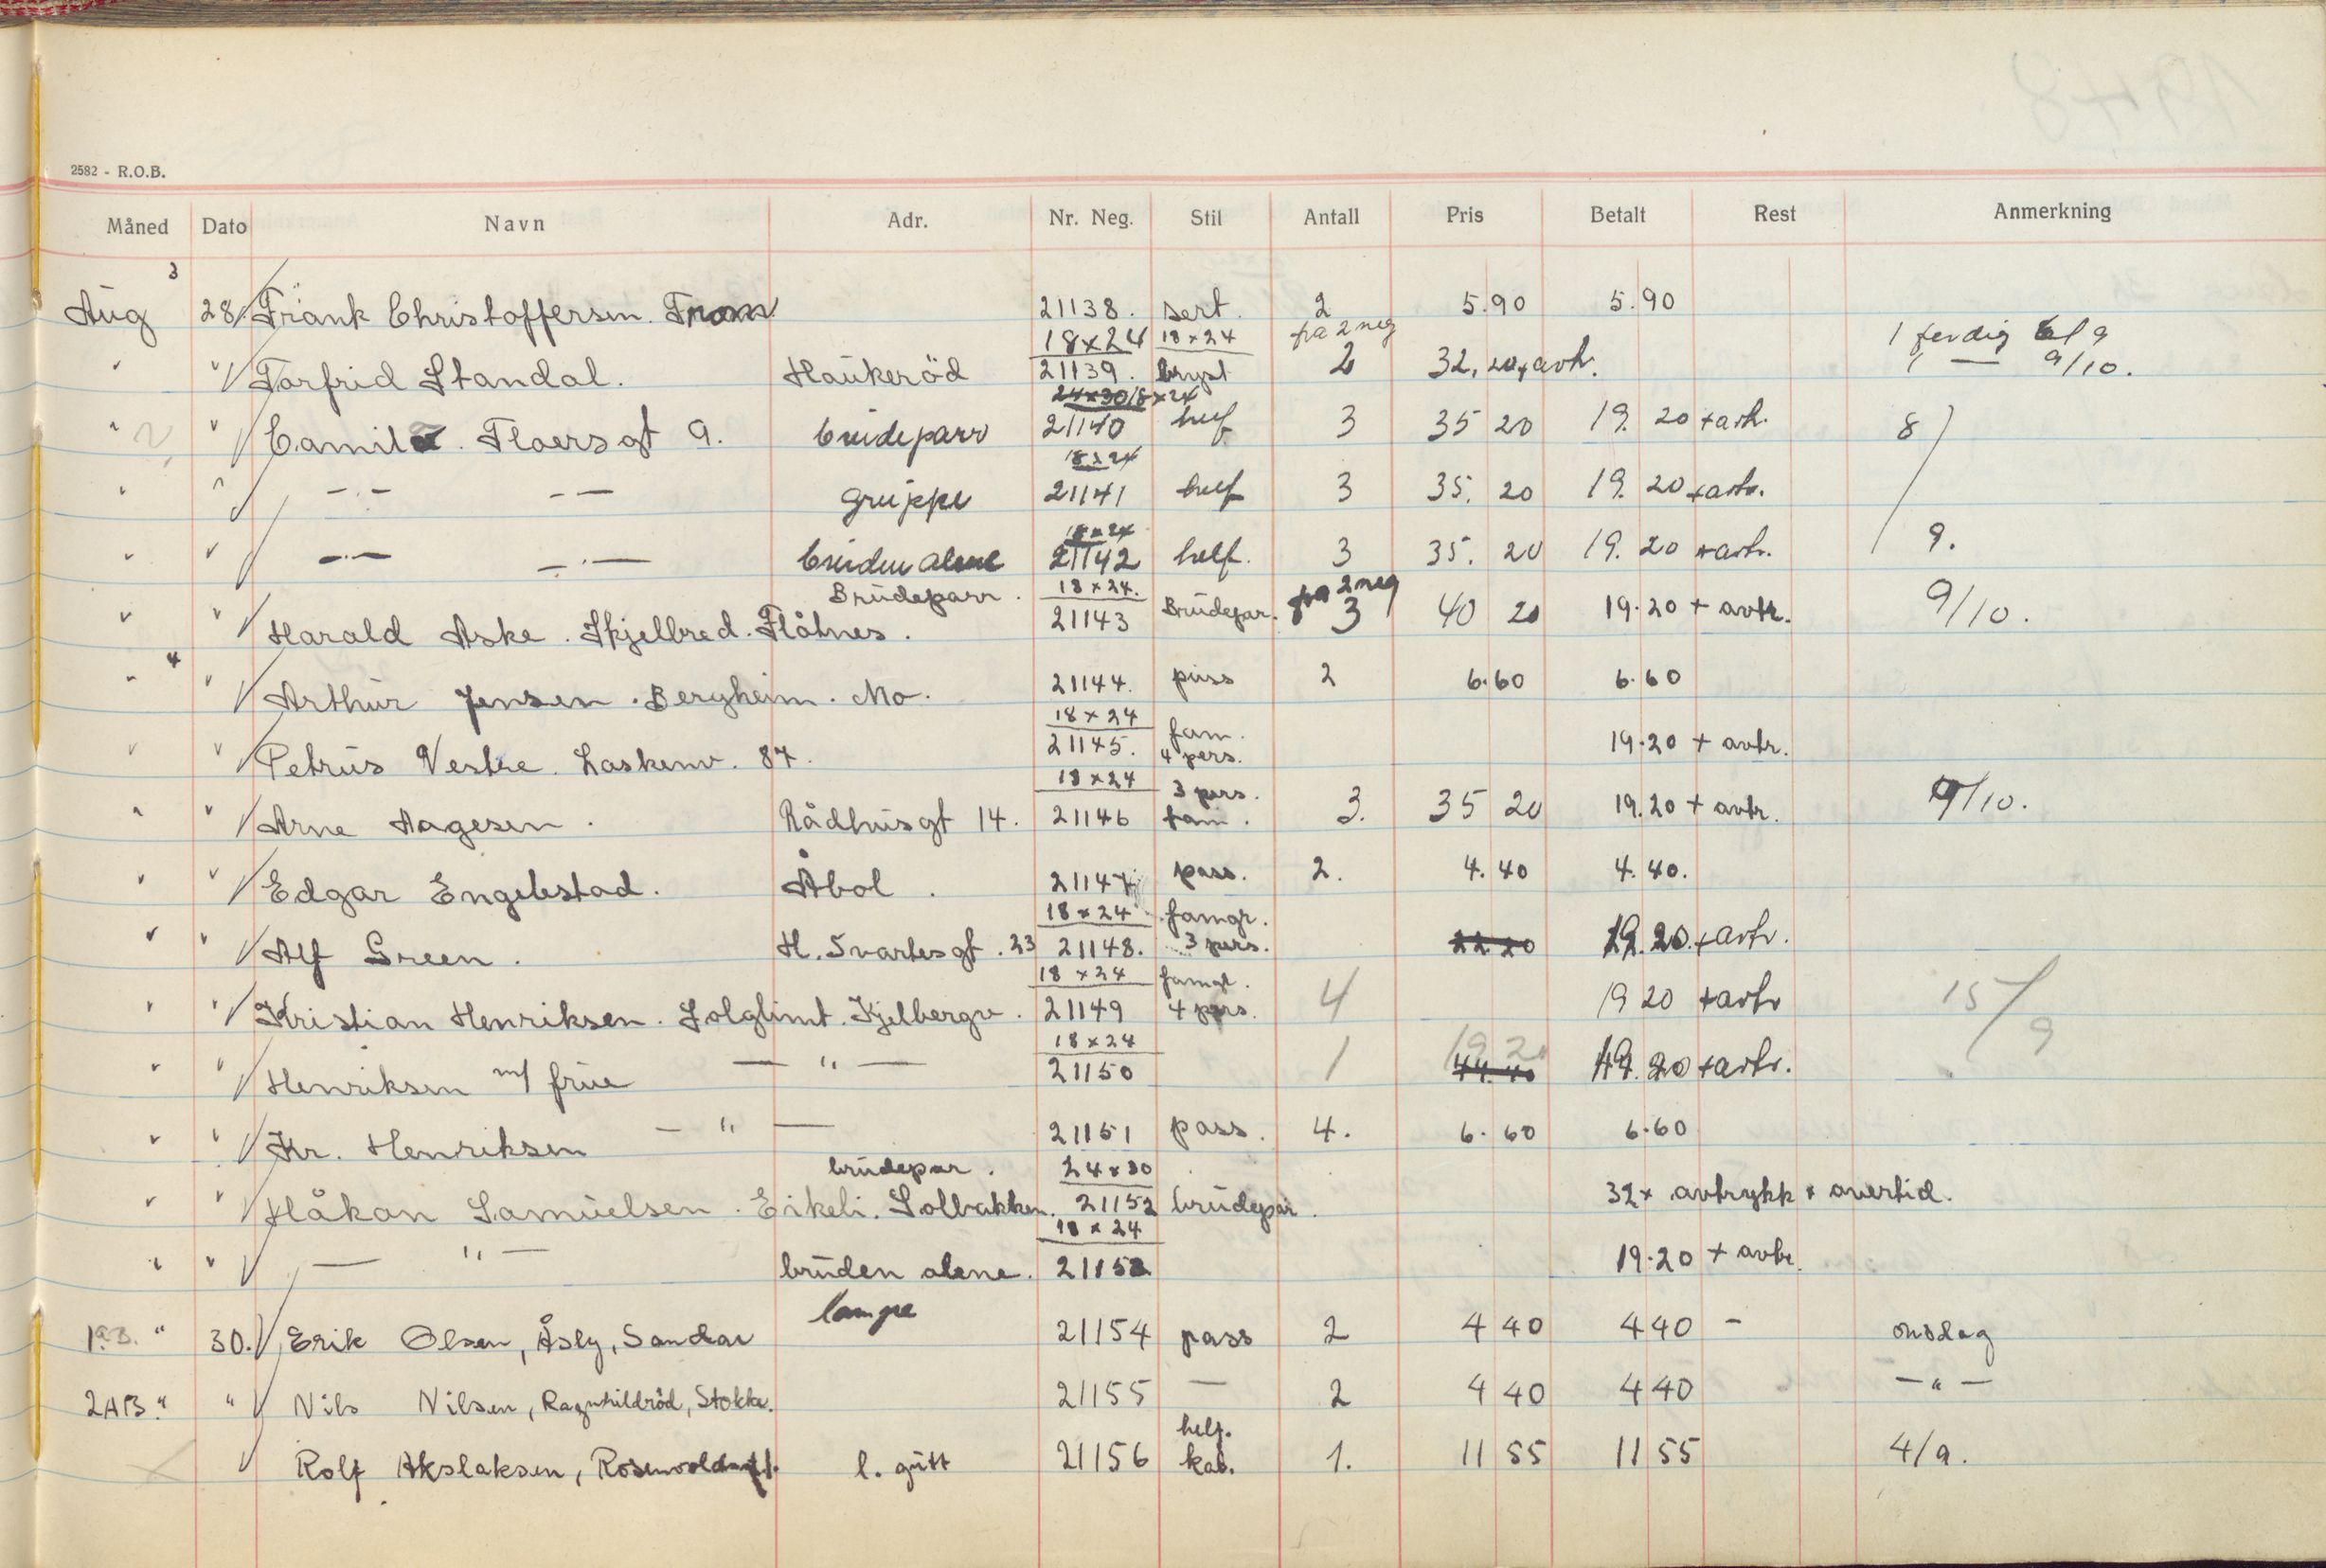 2582 - R.O.B.
Måned Dato Navn Adr. Nr. Neg. Stil Antall Pris Betalt Rest Anmerkning
3
Aug 28 Frank Christoffersen. From 21138. sert. 2 5.90 5.90
18x24 18x24 på 2 neg 1 ferdig 6/9
" " Torfrid Standal. Haukeröd 21139. bryst 2 32,20+avtr. 1 — 9/10.
24x30 18x24
" " Camilla. Floersgt 9. brudeparr 21140 huf 3 35 20 19.20 +avtr. 8
18x24
" " —·— — — gruppe 21141 huf 3 35.20 19.20 +avtr.
18x24
" " —·— —·— bruden alene 21142 helf. 3 35.20 19.20 +avtr. 9.
Brudeparr. 18x24. på 2 neg
" " Harald Aske. Skjellbred. Flåtnes. 21143 Brudepar. 3 40 20 19.20 + avtr. 9/10.
4
" " Arthur Jensen. Bergheim. Mo. 21144. pass 2 6.60 6.60
18x24 fam.
" " Petrus Vestre. Laskenv. 87. 21145. 4 pers. 19.20 + avtr.
18x24 3 pers.
" " Arne Aagesen. Rådhusgt 14. 21146 fam. 3. 35 20 19.20 + avtr. 9/10.
" " Edgar Engelstad. Åbol. 21147 pass. 2. 4.40 4.40.
18x24 famgr.
" " Alf Green. H. Svartesgt. 23 21148. 3 pers. 22 20 19.20.+avtr.
18x24 famgr.
" " Kristian Henriksen. Solglimt. Kjelbergv. 21149 4 pers. 4 19 20 +avtr 15/9
18x24 19 20
" " Henriksen m/ frue — " — 21150 1 44.40 19.20 +avtr.
" " Kr. Henriksen — " — 21151 pass. 4. 6.60 6.60
brudepar. 24x30
" " Håkon Samuelsen. Eikeli. Solbakken. 21152 brudepar. 32+ avtrykk + overtid.
18x24
" " — " — bruden alene. 21153 19.20 + avtr.
lampe
" 30. Erik Olsen, Åsly, Sandar 21154 pass 2 4 40 4 40 — onsdag
2AB. " " Nils Nilsen, Ragnhildröd, Stokke. 21155 — 2 4 40 4 40 — " —
helf.
Rolf Akslaksen, l. gutt 21156 kab. 1. 11 55 11 55 4/9.